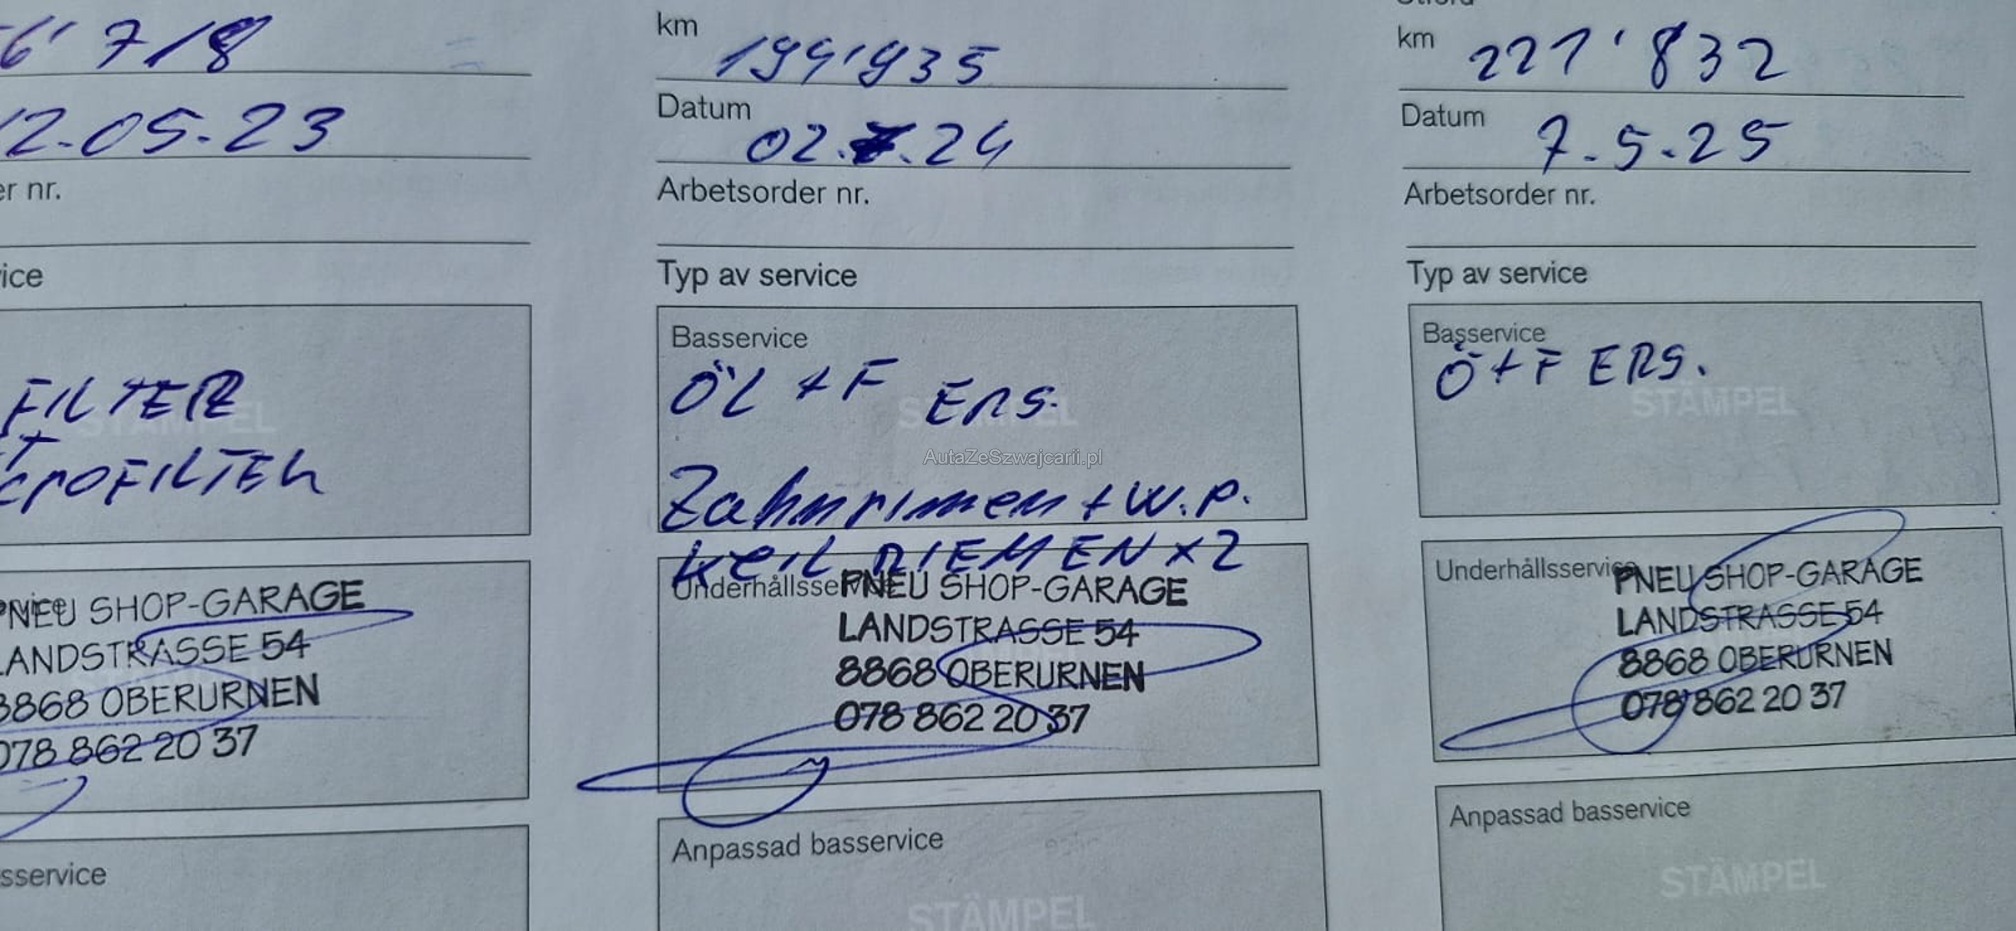 6'718
12.05.23
er nr.
ice
FILTER
+
FILTER
STÄMPEL
PNEU SHOP-GARAGE
LANDSTRASSE 54
8868 OBERURNEN
078 862 20 37
sservice
km 199'935
Datum 02. .24
Arbetsorder nr.
Typ av service
Basservice
ÖL + F ERS.
STÄMPEL
AutaZeSzwajcarii.pl
Zahnrimen + W.P.
KEIL RIEMEN x2
Underhållsservice
PNEU SHOP-GARAGE
LANDSTRASSE 54
8868 OBERURNEN
078 862 20 37
Anpassad basservice
STÄMPEL
km 221'832
Datum 7.5.25
Arbetsorder nr.
Typ av service
Basservice
Ö+F ERS.
STÄMPEL
Underhållsservice
PNEU SHOP-GARAGE
LANDSTRASSE 54
8868 OBERURNEN
078 862 20 37
Anpassad basservice
STÄMPEL